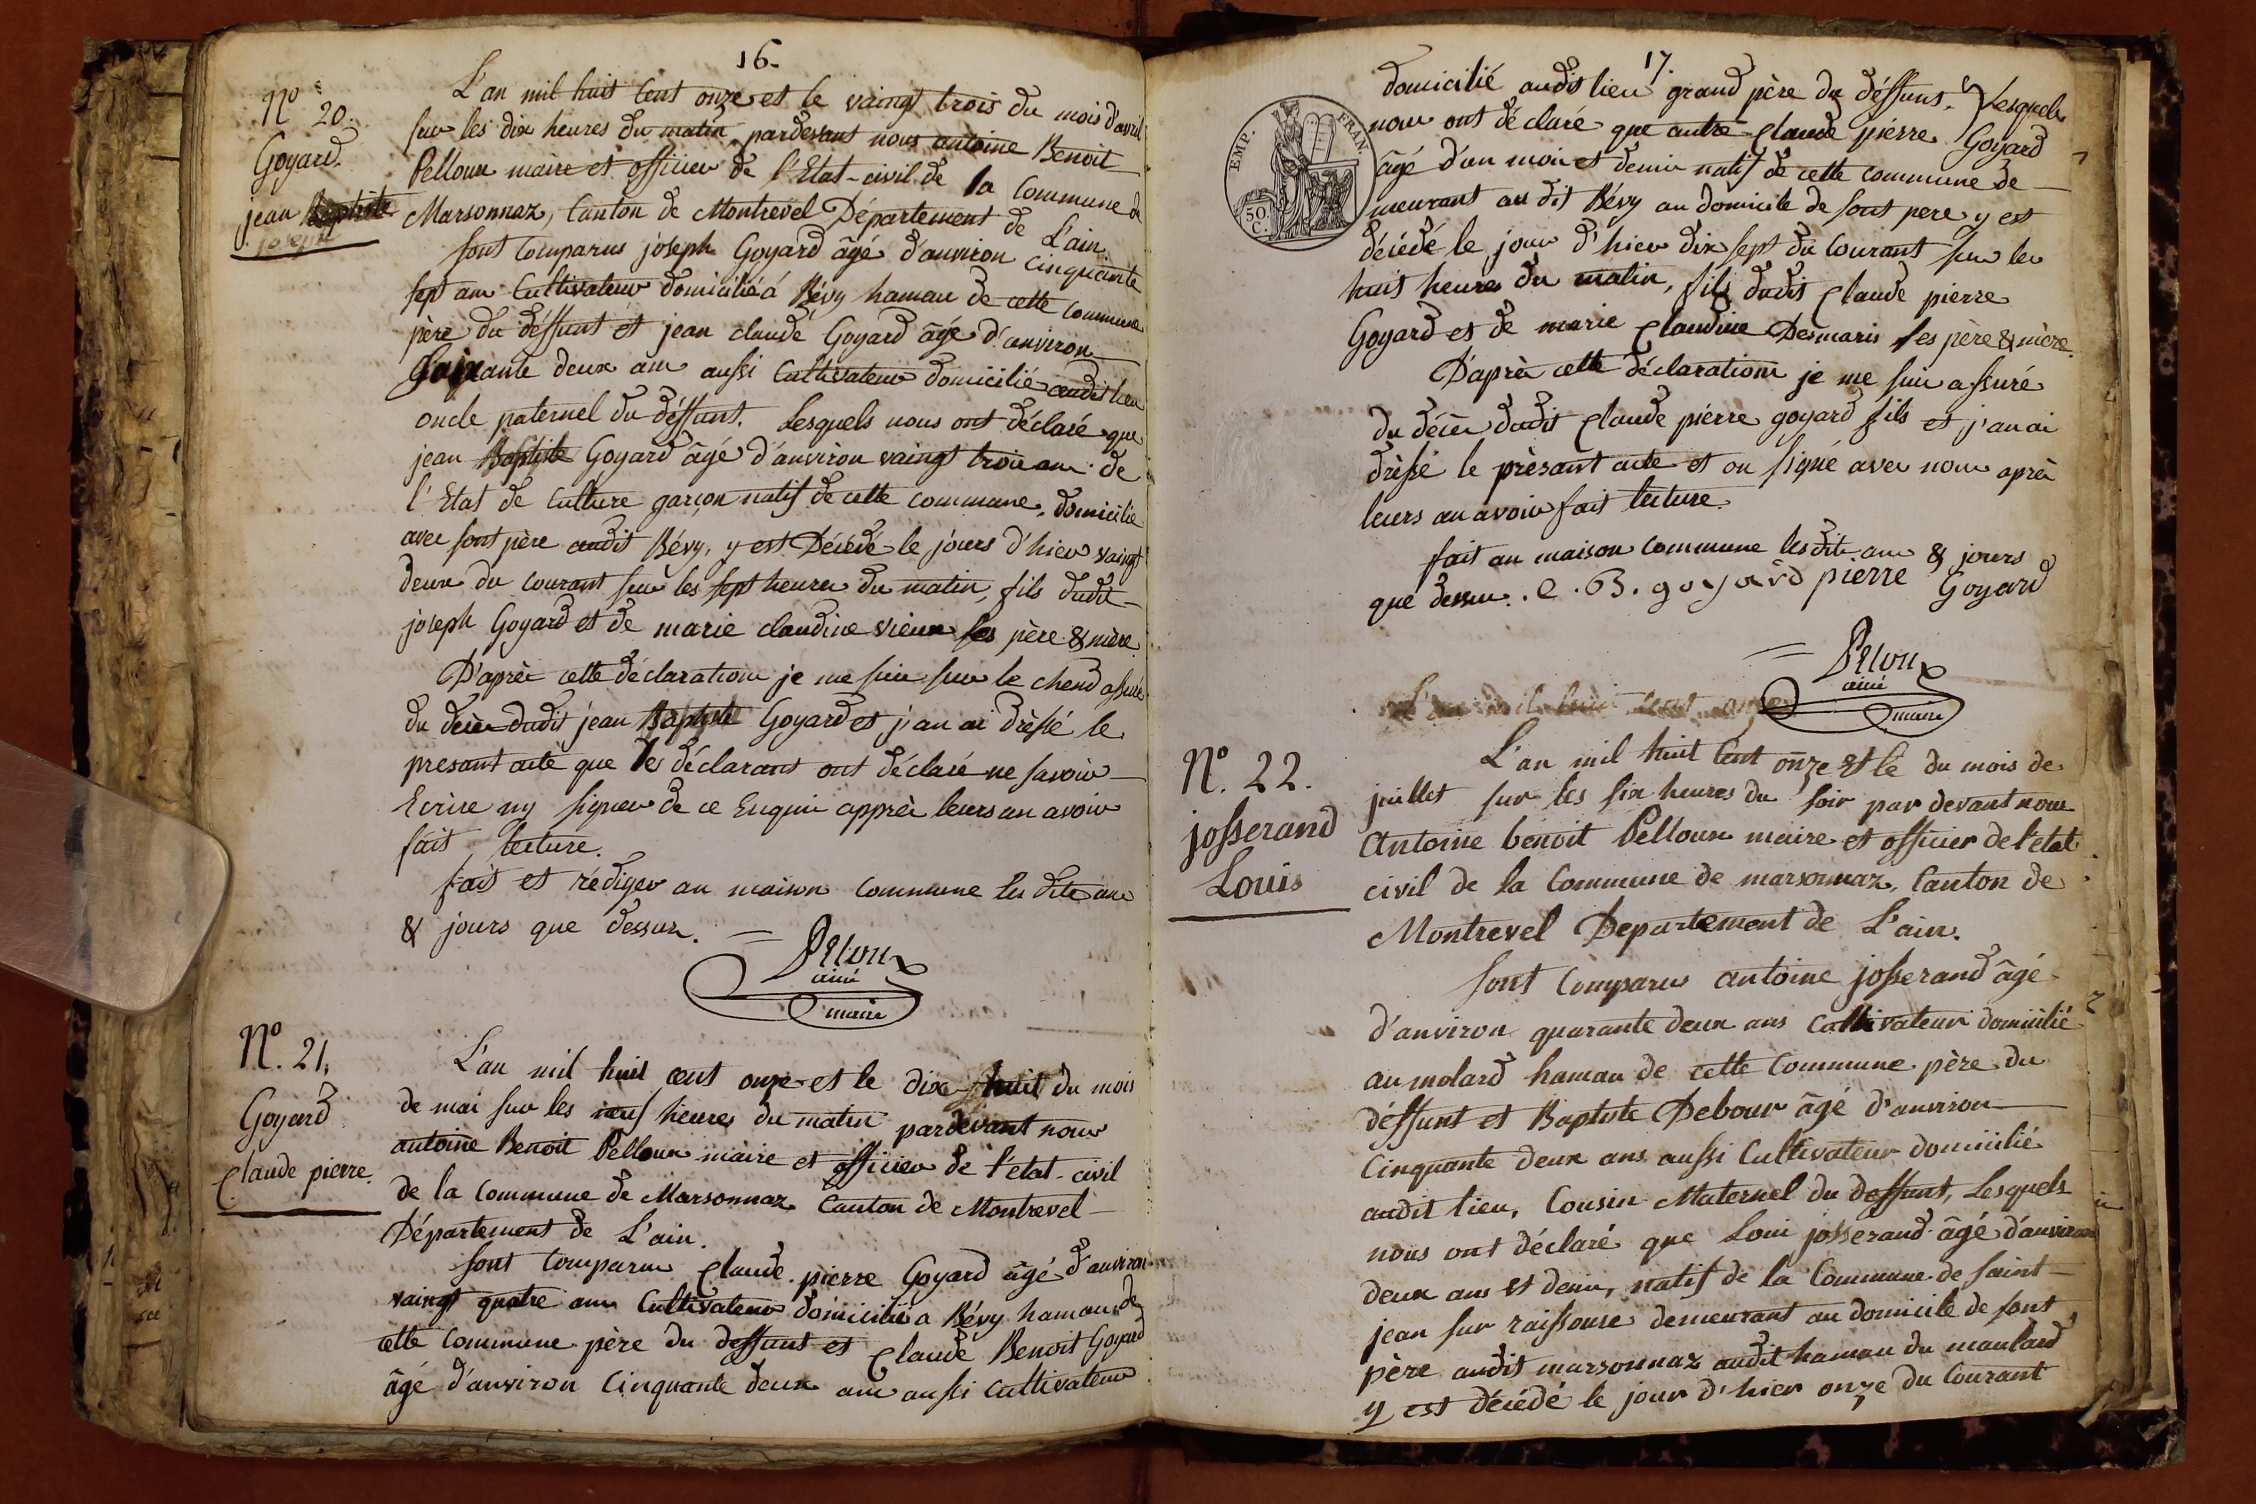 16.
N° 20.
Goyard
jean Baptiste
joseph
L'an mil huit cent onze et le vaingt trois du mois d'avril
sur les dix heures du matin pardevant nous antoine Benoit
Pelloux maire et officier de l'Etat-civil de la Commune de
Marsonnaz, Canton de Montrevel Département de L'ain.
sont Comparus joseph Goyard âgé d'anviron cinquante
sept ans Cultivateur domicilié á Bévy hamau de cette commune
père du déffunt et jean claude Goyard âgé d'anviron
soixante deux ans aussi Cultivateur domicilié audit lieu
oncle paternel du déffunt. Lesquels nous ont déclaré que
jean Baptiste Goyard âgé d'anviron vaingt trois ans de
l'Etat de Culture garçon natif de cette commune, domicilié
avec sont père audit Bévy, y est Décédé le jours d'hier vaingt
deux du courant sur les sept heures du matin, fils dudit
joseph Goyard et de marie claudine vieux ses père & mère.
D'après cette déclaration je me suis sur le chend assuré
du décès dudit jean Baptiste Goyard et j'an ai drèssé le
presant acte que les déclarans ont déclaré ne savoir
Ecrire ny signer de ce Enquis apprès leurs an avoir
fait lecture.
fait et rédiger an maison commune les dits ans
& jours que dessus.
Pelloux
ainé
maire
N°. 21.
Goyard
Claude pierre.
L'an mil huit cent onze et le dix huit du mois
de mai sur les neuf heures du matin pardevant nous
antoine Benoit Pelloux maire et officier de l'état-civil
de la Commune de Marsonnaz Canton de Montrevel
Département de L'ain.
sont Comparus Claude pierre Goyard âgé d'anviron
vaingt quatre ans Cultivateur domicilié a Bévy hamau de
cette Commune père du deffunt et Claude Benoit Goyard
âgé d'anviron Cinquante deux ans aussi Cultivateur
17.
EMP. FRAN.
50
C.
domicilié audit lieu grand père du déffunt. Lesquels
nous ont déclaré que autre Claude pierre Goyard
âgé d'un mois et demis natif de cette commune de
meurant au dit Bévy au domicile de sont pere y est
décédé le jour d'hier dix sept du Courant sur les
huit heures du matin, fils dudit Claude pierre
Goyard et de marie Claudine Desmaris ses père & mère.
D'après cette déclaration je me suis assuré
du décès dudit Claude pierre goyard fils et j'an ai
drèssé le prèsant acte et on signé avec nous après
leurs an avoir fait lecture.
fait an maison commune lesdits ans & jours
que dessus. C. B. goyard pierre Goyard
Pelloux
ainé
maire
L'an mil huit cent onze
N°. 22.
josserand
Louis
L'an mil huit Cent onze et le du mois de
juillet sur les six heures du soir par devant nous
Antoine benoit Pelloux maire et officier de l'etat
civil de la Commune de marsonnaz, Canton de
Montrevel Departement de L'ain.
sont Comparus antoine josserand âgé
d'anviron quarante deux ans Cultivateur domicilié
au molard hamau de cette Commune père du
déffunt et Baptiste Debour âgé d'anviron
Cinquante deux ans aussi Cultivateur domicilié
audit lieu, Cousin Maternel du deffunt, Lesquels
nous ont déclaré que Louis josserand âgé d'anviron
deux ans et demis, natif de la Commune de saint
jean sur raissouse demeurant au domicile de sont
père audit marsonnaz audit hamau du maulard
y est décédé le jour d'hier onze du Courant